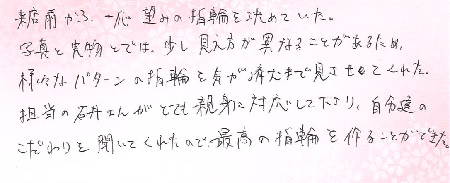 来店前から、一応望みの指輪を決めていた。
写真と実物とでは、少し見え方が異なることがあるため、
様々なパターンの指輪を気が済むまで見させてくれた。
担当の石井さんがとても親身に対応して下さり、自分達の
こだわりを聞いてくれたので、最高の指輪を作ることができた。